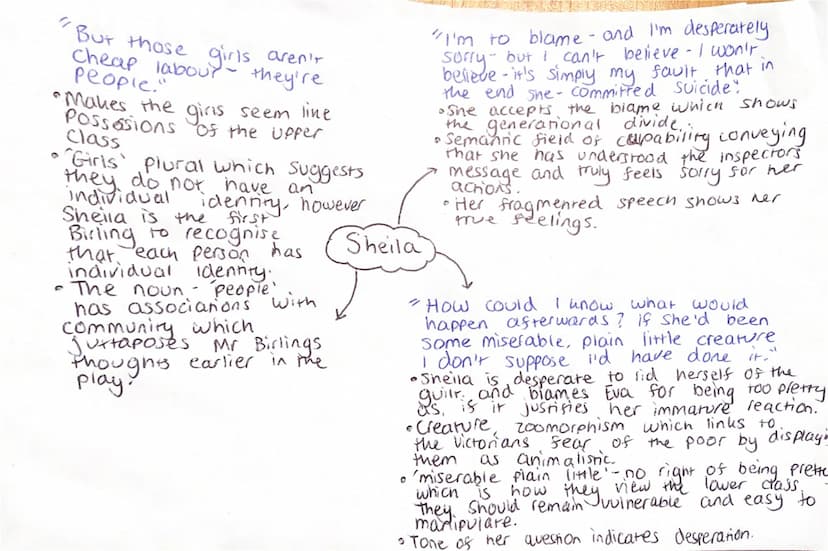 "But those girls aren't
cheap labour - they're
people."
• Makes the girls seem like
possosions of the upper
class
• 'Girls' plural which suggests
they do not have an
individual identity, however
Sheila is the first
Birling to recognise
that each person has
individual identity.
• The noun - 'people'
has associations with
community which
juxtaposes Mr Birlings
thoughts earlier in the
play.
Sheila
"I'm to blame - and I'm desperately
sorry - but I can't believe - I won't
believe - it's simply my fault that in
the end she - committed suicide."
• She accepts the blame which shows
the generational divide.
• Semantic field of culpability conveying
that she has understood the inspectors
message and truly feels sorry for her
actions.
• Her fragmented speech shows her
true feelings.
"How could I know what would
happen afterwards? if she'd been
some miserable, plain little creature
I don't suppose i'd have done it."
• Sheila is desperate to rid herself of the
guilt and blames Eva for being too pretty
as if it justifies her immature reaction.
• Creature, zoomorphism which links to
the Victorians fear of the poor by displayi
them as animalistic.
• 'miserable plain little' - no right of being prett
which is how they view the lower class -
They should remain vulnerable and easy to
manipulate.
• Tone of her question indicates desperation.